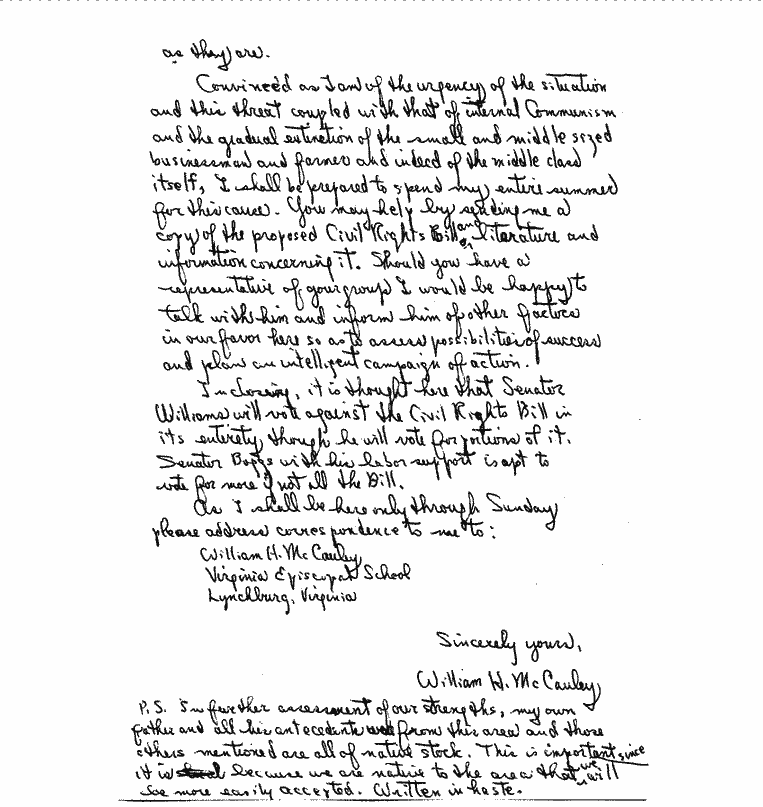 as they are.
Convinced as I am of the urgency of the situation
and this threat coupled with that of internal Communism
and the gradual extinction of the small and middle sized
businessman and farmer and indeed of the middle class
itself, I shall be prepared to spend my entire summer
for this cause. You may help by sending me a
copy of the proposed Civil Rights Bill, and literature and
information concerning it. Should you have a
representative of your group I would be happy to
talk with him and inform him of other factors
in our favor here so as to assess possibilities of success
and plan an intelligent campaign of action.
In closing, it is thought here that Senator
Williams will vote against the Civil Rights Bill in
its entirety though he will vote for portions of it.
Senator Boggs with his labor support is apt to
vote for more if not all the Bill.
As I shall be here only through Sunday
please address correspondence to me to:
William H. McCauley
Virginia Episcopal School
Lynchburg, Virginia
Sincerely yours,
William H. McCauley
P.S. In further assessment of our strengths, my own
father and all his antecedents from this area and those
others mentioned are all of native stock. This is important, since
it is because we are native to the area that we will
be more easily accepted. Written in haste.